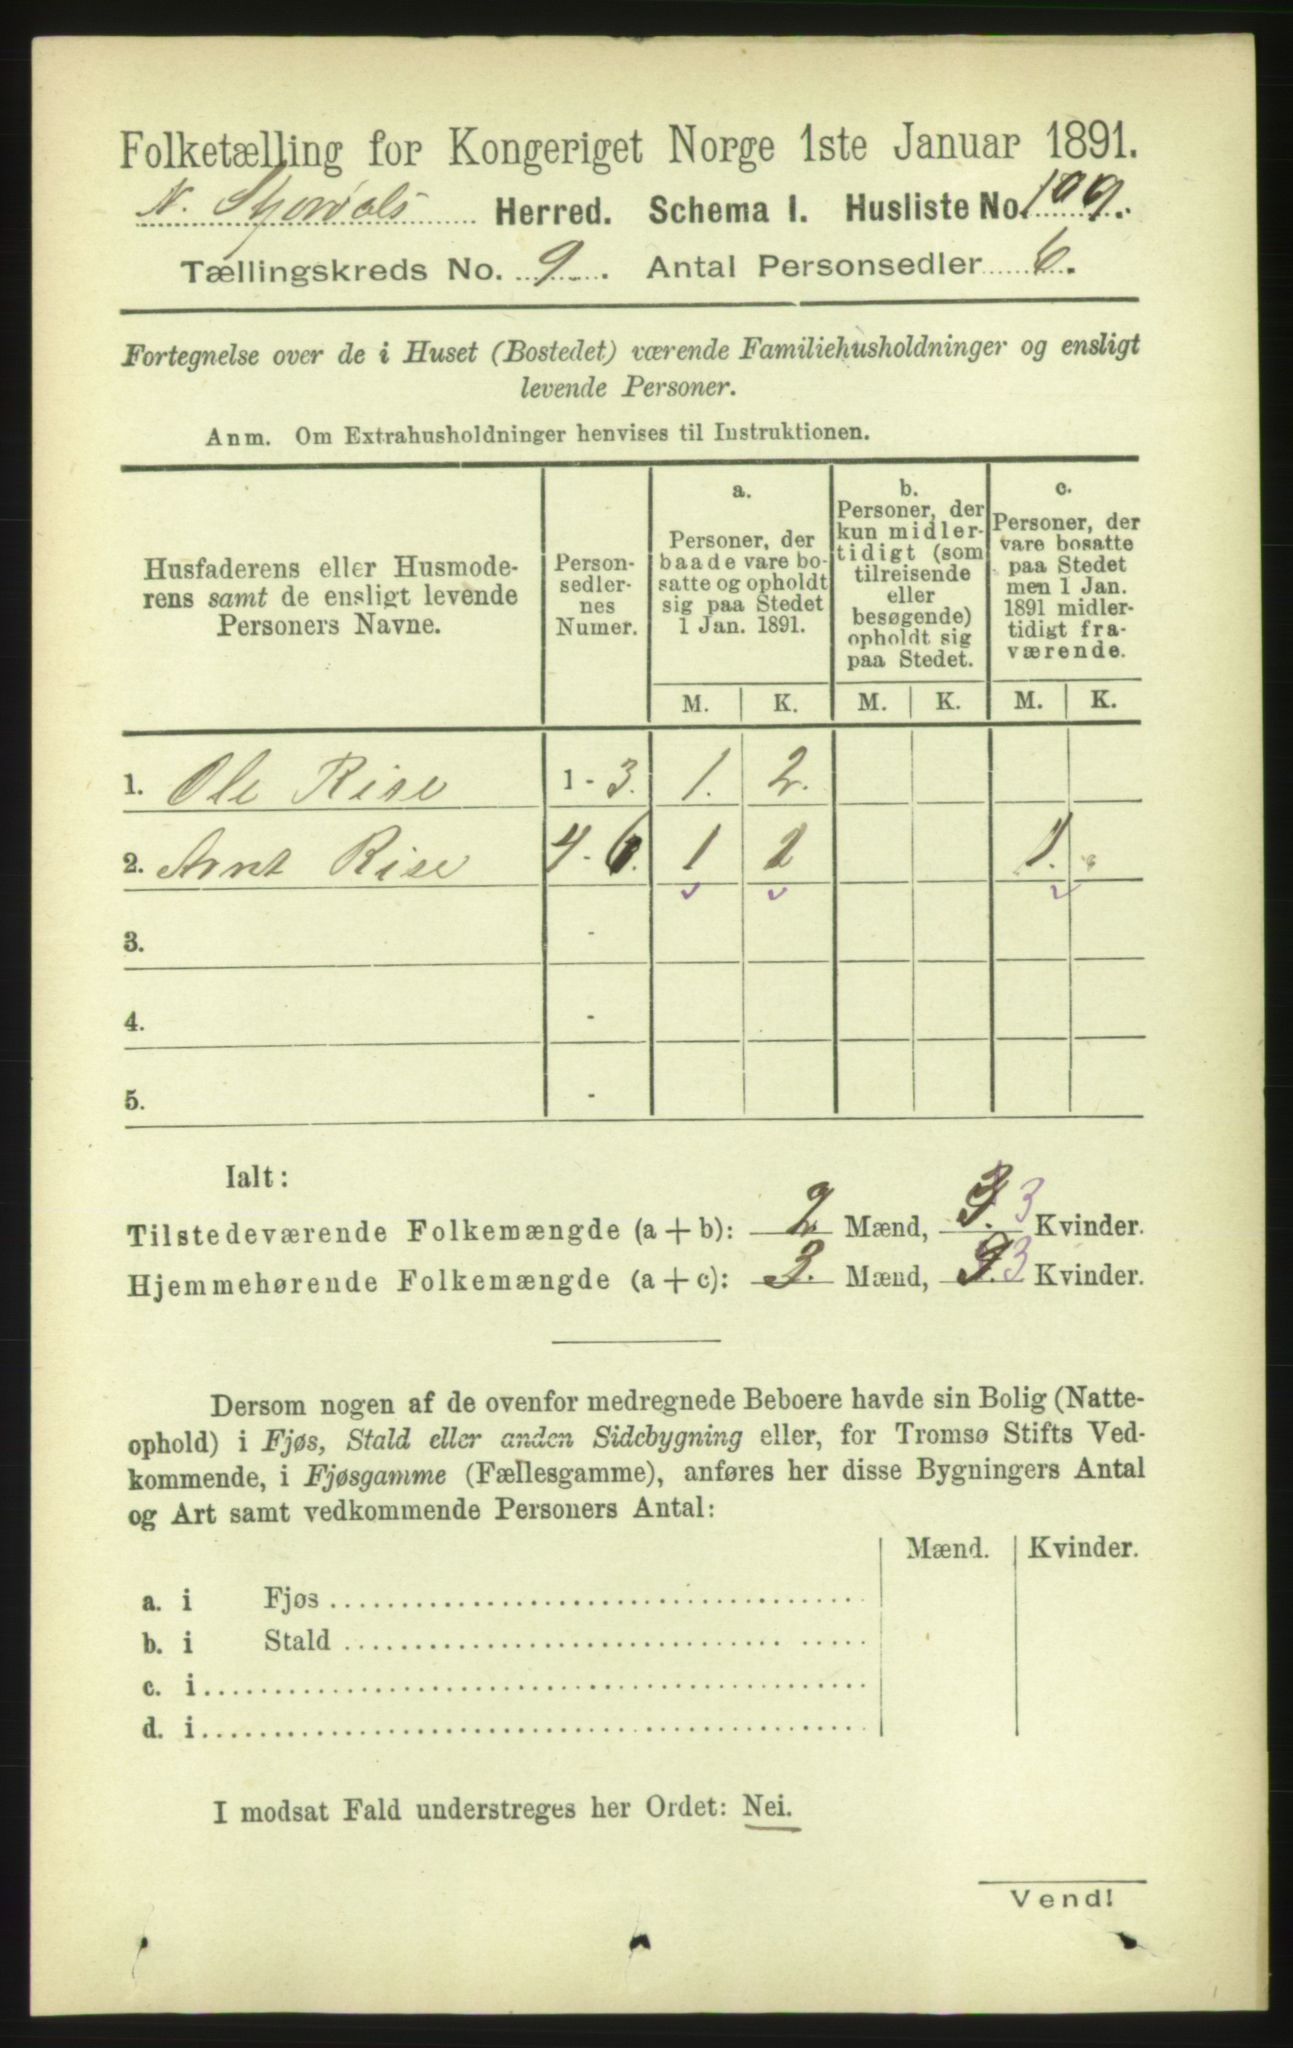 Folketælling for Kongeriget Norge 1ste Januar 1891.
N. Stjørdals Herred. Schema I. Husliste No. 109.
Tællingskreds No. 9. Antal Personsedler 6.
Fortegnelse over de i Huset (Bostedet) værende Familiehusholdninger og ensligt
levende Personer.
Anm. Om Extrahusholdninger henvises til Instruktionen.
Husfaderens eller Husmode-
rens samt de ensligt levende
Personers Navne.
Person-
sedler-
nes
Numer.
a.
Personer, der
baade vare bo-
satte og opholdt
sig paa Stedet
1 Jan. 1891.
b.
Personer, der
kun midler-
tidigt (som
tilreisende
eller
besøgende)
opholdt sig
paa Stedet.
c.
Personer, der
vare bosatte
paa Stedet
men 1 Jan.
1891 midler-
tidigt fra-
værende.
M. K. M. K. M. K.
1. Ole Rise 1 - 3. 1. 2.
2. Arnt Rise 4 - 6. 1 1 1.
3. -
4. -
5. -
Ialt:
Tilstedeværende Folkemængde (a + b): 2 Mænd, 3 Kvinder.
Hjemmehørende Folkemængde (a + c): 3. Mænd, 3 Kvinder.
Dersom nogen af de ovenfor medregnede Beboere havde sin Bolig (Natte-
ophold) i Fjøs, Stald eller anden Sidebygning eller, for Tromsø Stifts Ved-
kommende, i Fjøsgamme (Fællesgamme), anføres her disse Bygningers Antal
og Art samt vedkommende Personers Antal:
Mænd. Kvinder.
a. i Fjøs
b. i Stald
c. i
d. i
I modsat Fald understreges her Ordet: Nei.
Vend!